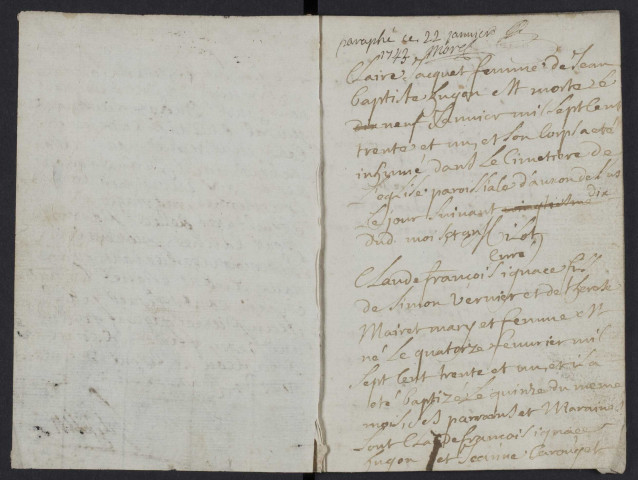 paraphé ce 22 janvier
1742 Morel
Claire Jacquet femme de Jean
baptiste hugon est morte le
neuf Janvier mil sept Cent
trente et un et son Corps a eté
inhumé dans Le Cimetiere de
l'eglise paroisiale
le jour suivant dix
dud mois et an
Curé
Claude françois ignace fils
de Simon Vernier et de therese
Mairet mary et femme est
né Le quatorze feuvrier mil
sept Cent trente et un et il a
eté baptizé Le quinze du meme
mois ses parrains et Maraines
sont Claude françois ignace
hugon et Jeanne